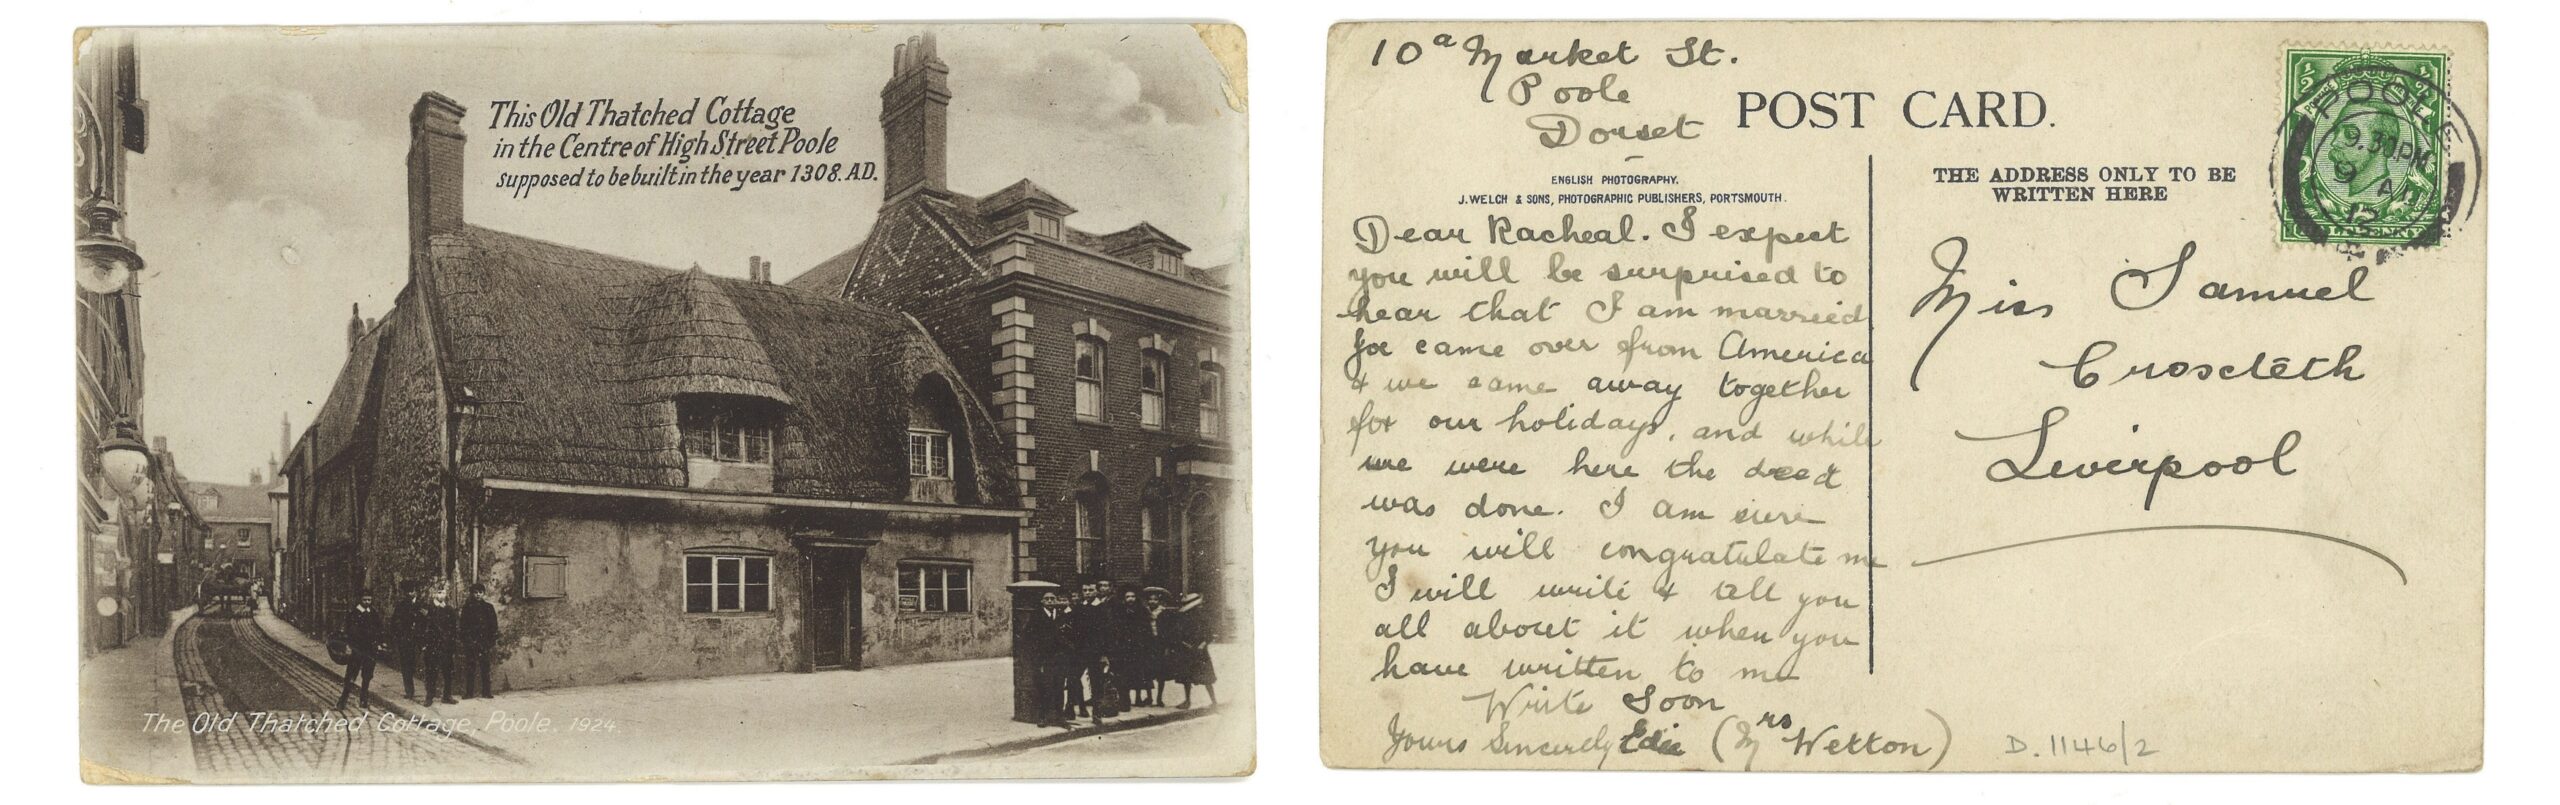 This Old Thatched Cottage
in the Centre of High Street Poole
supposed to be built in the year 1308. A.D.
The Old Thatched Cottage, Poole. 1924.
10a Market St.
Poole
Dorset
POST CARD.
ENGLISH PHOTOGRAPHY.
J. WELCH & SONS, PHOTOGRAPHIC PUBLISHERS, PORTSMOUTH.
THE ADDRESS ONLY TO BE
WRITTEN HERE
Dear Racheal. I expect
you will be surprised to
hear that I am married
Joe came over from America
& we came away together
for our holidays, and while
we were here the deed
was done. I am sure
you will congratulate me
I will write & tell you
all about it when you
have written to me
Write Soon
Yours Sincerely Edie (Mrs Wetton)
Miss Samuel
Croscteth
Liverpool
POOLE
9.30 PM
9
12
D.1146/2